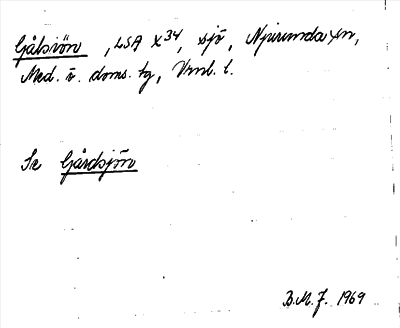 Gålsiön, LSA X34, sjö, Njurunda sn,
Med. ö. doms. tg, Vrnl. l.
Se Gårdsjön
B.M.J. 1969